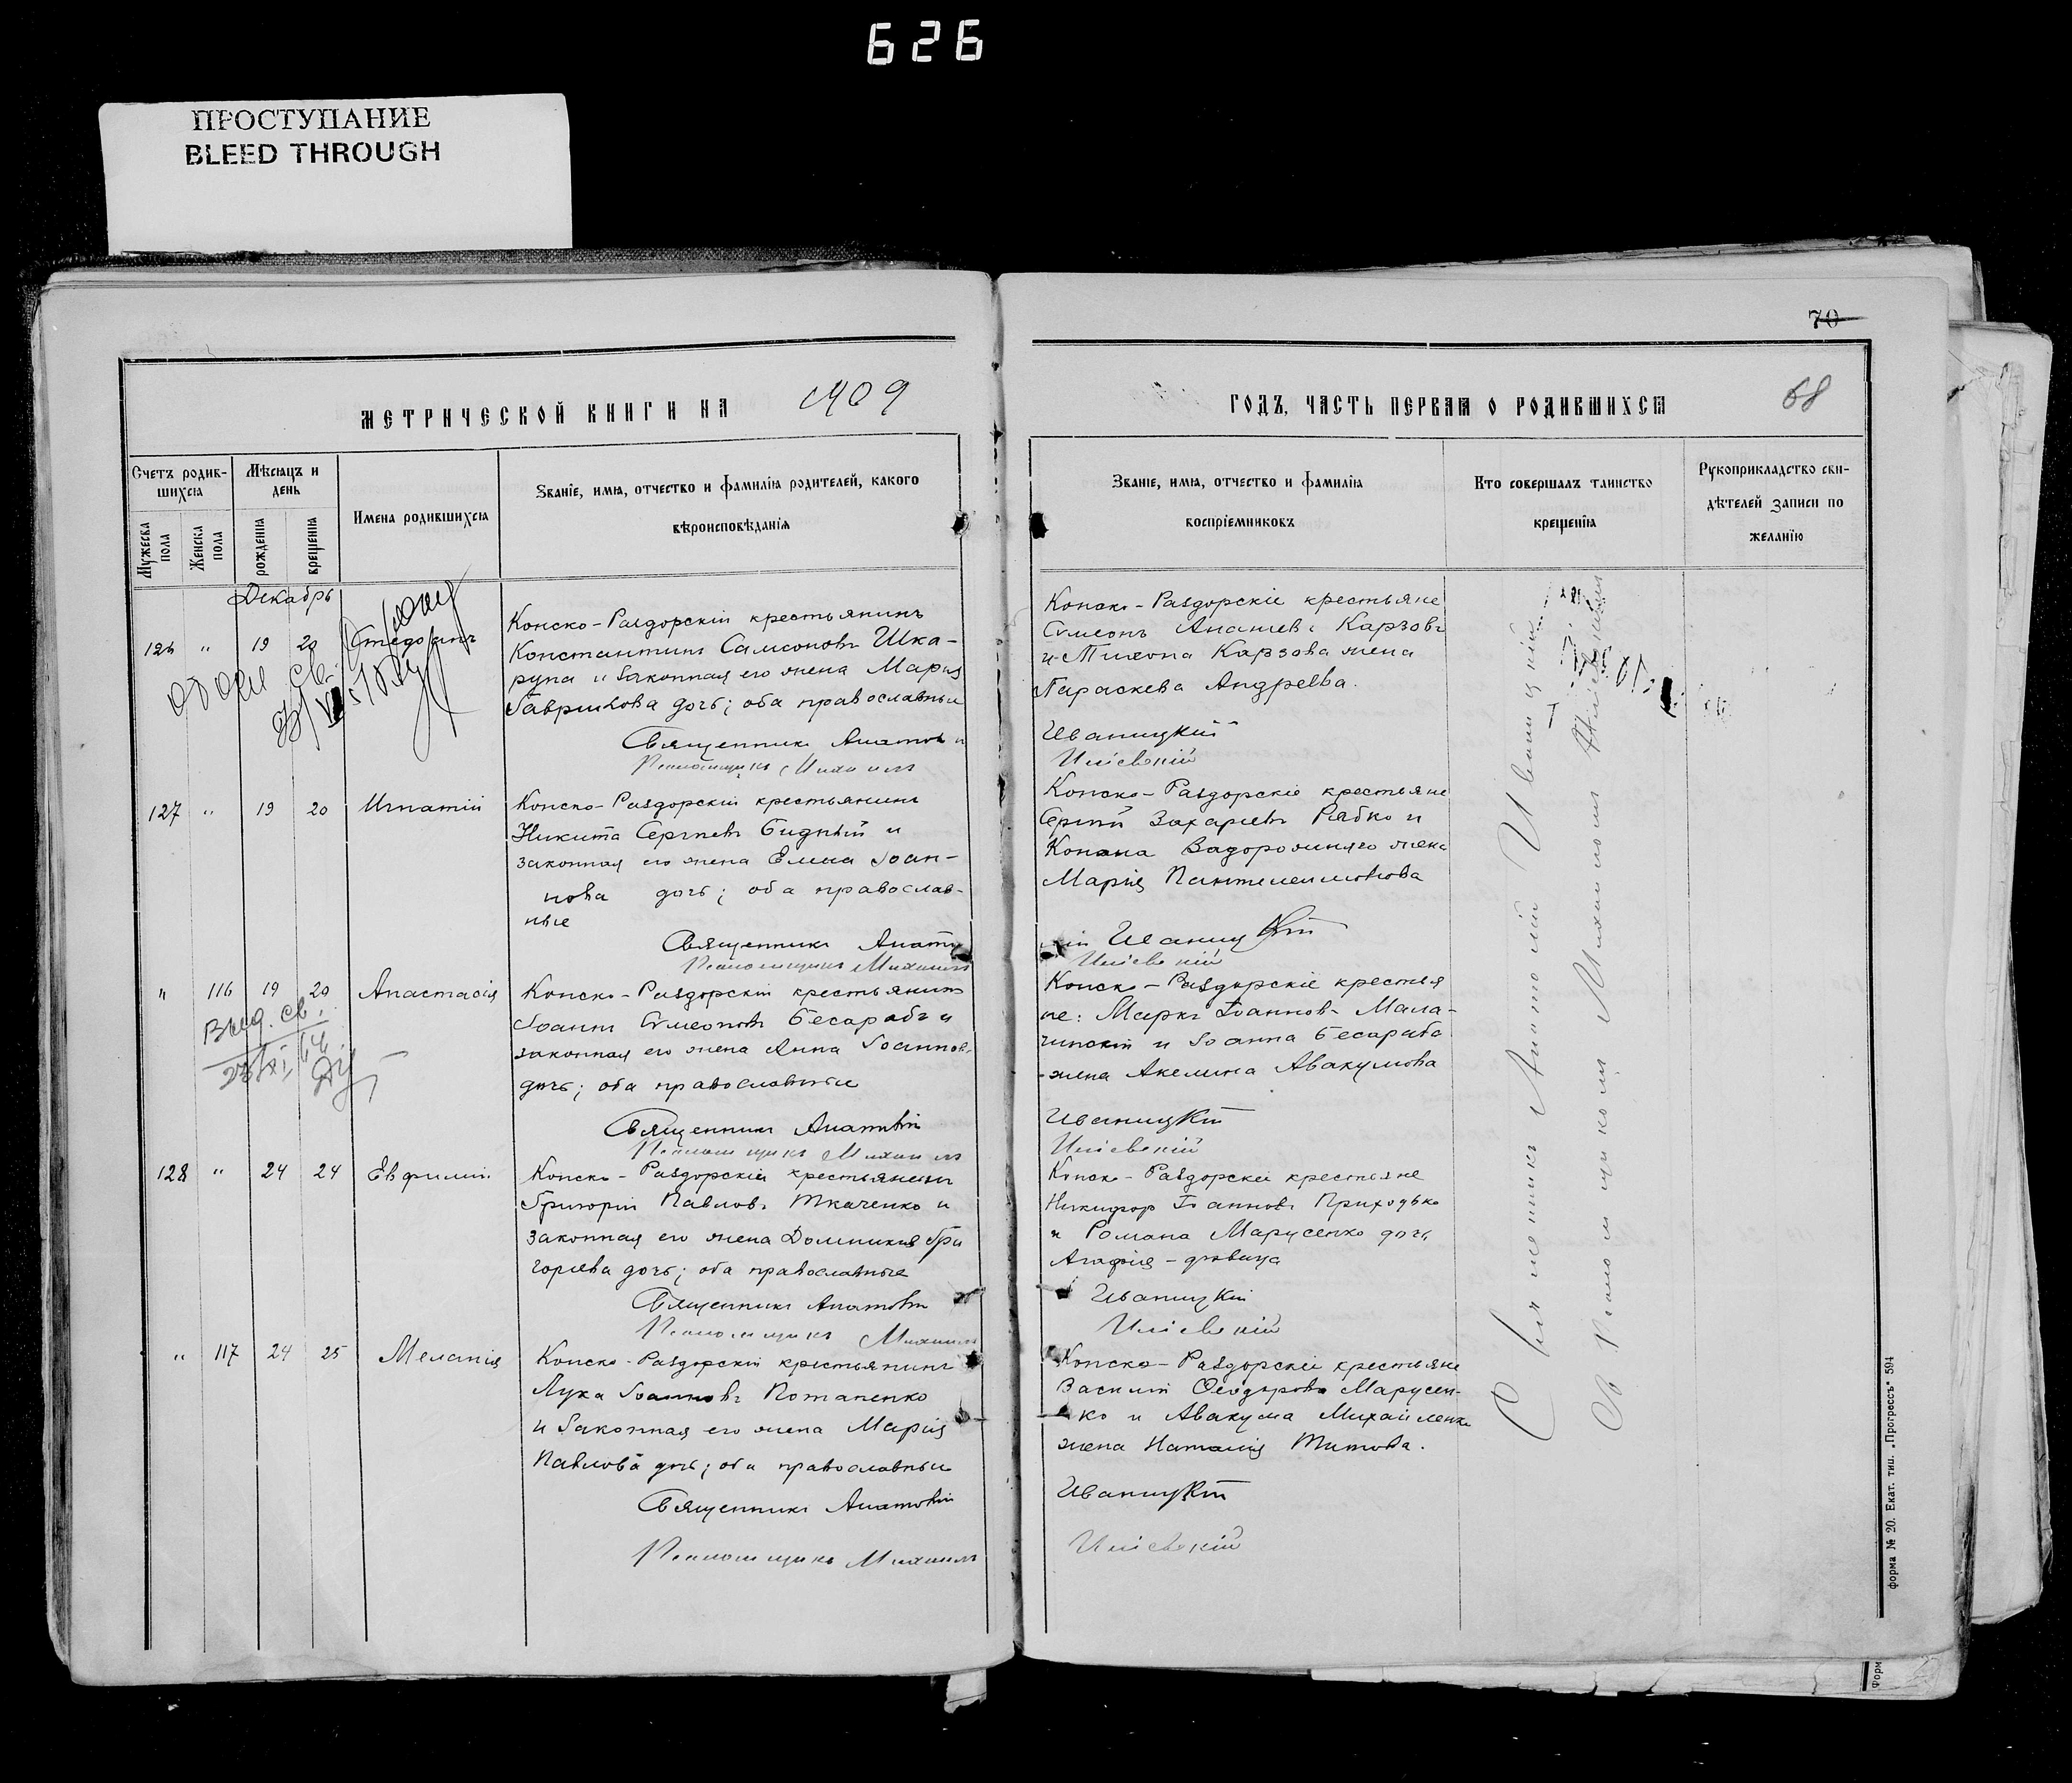 626
ПРОСТУПАНИЕ
BLEED THROUGH
МЕТРИЧЕСКОЙ КНИГИ НА 1909
Счетъ родив-
шихся
Мѣсяцъ и
день
Имена родившихся
Званіе, имя, отчество и фамилія родителей, какого
вѣроисповѣданія
Мужеска
пола
Женска
пола
рожденія
крещенія
Декабрь
126 " 19 20
Конско-Раздорскій крестьянинъ
Константинъ Самсоновъ Шка-
рупа и законная его жена Марія
Гаврилова дочь; оба православные
Священникъ Анатолій
Псаломщикъ Михаилъ
127 " 19 20 Игнатій
Конско-Раздорскій крестьянинъ
Никита Сергѣевъ Бидный и
законная его жена Елена Іоан-
нова дочь; оба православ-
ные
Священникъ Анато
Псаломщикъ Михаилъ
" 116 19 20 Анастасія
Выд. св.
Конско-Раздорскій крестьянинъ
Іоаннъ Сѵмеоновъ Бесарабъ и
законная его жена Анна Іоаннов.
дочь; оба православные
Священникъ Анатолій
Псаломщикъ Михаилъ
128 " 24 24 Евфимій
Конско-Раздорскій крестьянинъ
Григорій Павловъ Ткаченко и
законная его жена Домникія Гри
горіева дочь; оба православные
Священникъ Анатолій
Псаломщикъ Михаилъ
" 117 24 25 Меланія
Конско-Раздорскій крестьянинъ
Лука Іоанновъ Потапенко
и законная его жена Марія
Павлова дочь; оба православные
Священникъ Анатолій
Псаломщикъ Михаилъ
70
68
ГОДЪ, ЧАСТЬ ПЕРВАЯ О РОДИВШИХСЯ
Званіе, имя, отчество и фамилія
воспріемниковъ
Кто совершалъ таинство
крещенія
Рукоприкладство сви-
дѣтелей записи по
желанію
Конско-Раздорскіе крестьяне
Сѵмеонъ Ананіевъ Карзовъ
и Тихона Карзова жена
Параскева Андреева.
Иваницкій
Конско-Раздорскіе крестьяне
Сергій Захаріевъ Рябко и
Конона Задорожняго жена
Марія Пантелеимонова
лій Иваницкій
Конско-Раздорскіе крестья
не: Маркъ Іоанновъ Мала-
чинскій и Іоанна Бесараба
жена Акелина Авакумова
Иваницкій
Конско-Раздорскіе крестьяне
Никифор Іоанновъ Приходько
и Романа Марусенко дочь
Агафія - дѣвица
Иваницкій
Конско-Раздорскіе крестьяне
Василій Ѳеодоровъ Марусен-
ко и Авакума Михайленка
жена Наталія Титова.
Иваницкій
Священникъ Анатолій Иваницкій
съ Псаломщикомъ Михаиломъ
форма № 20. Екат. тип. „Прогрессъ“ 594
Форм